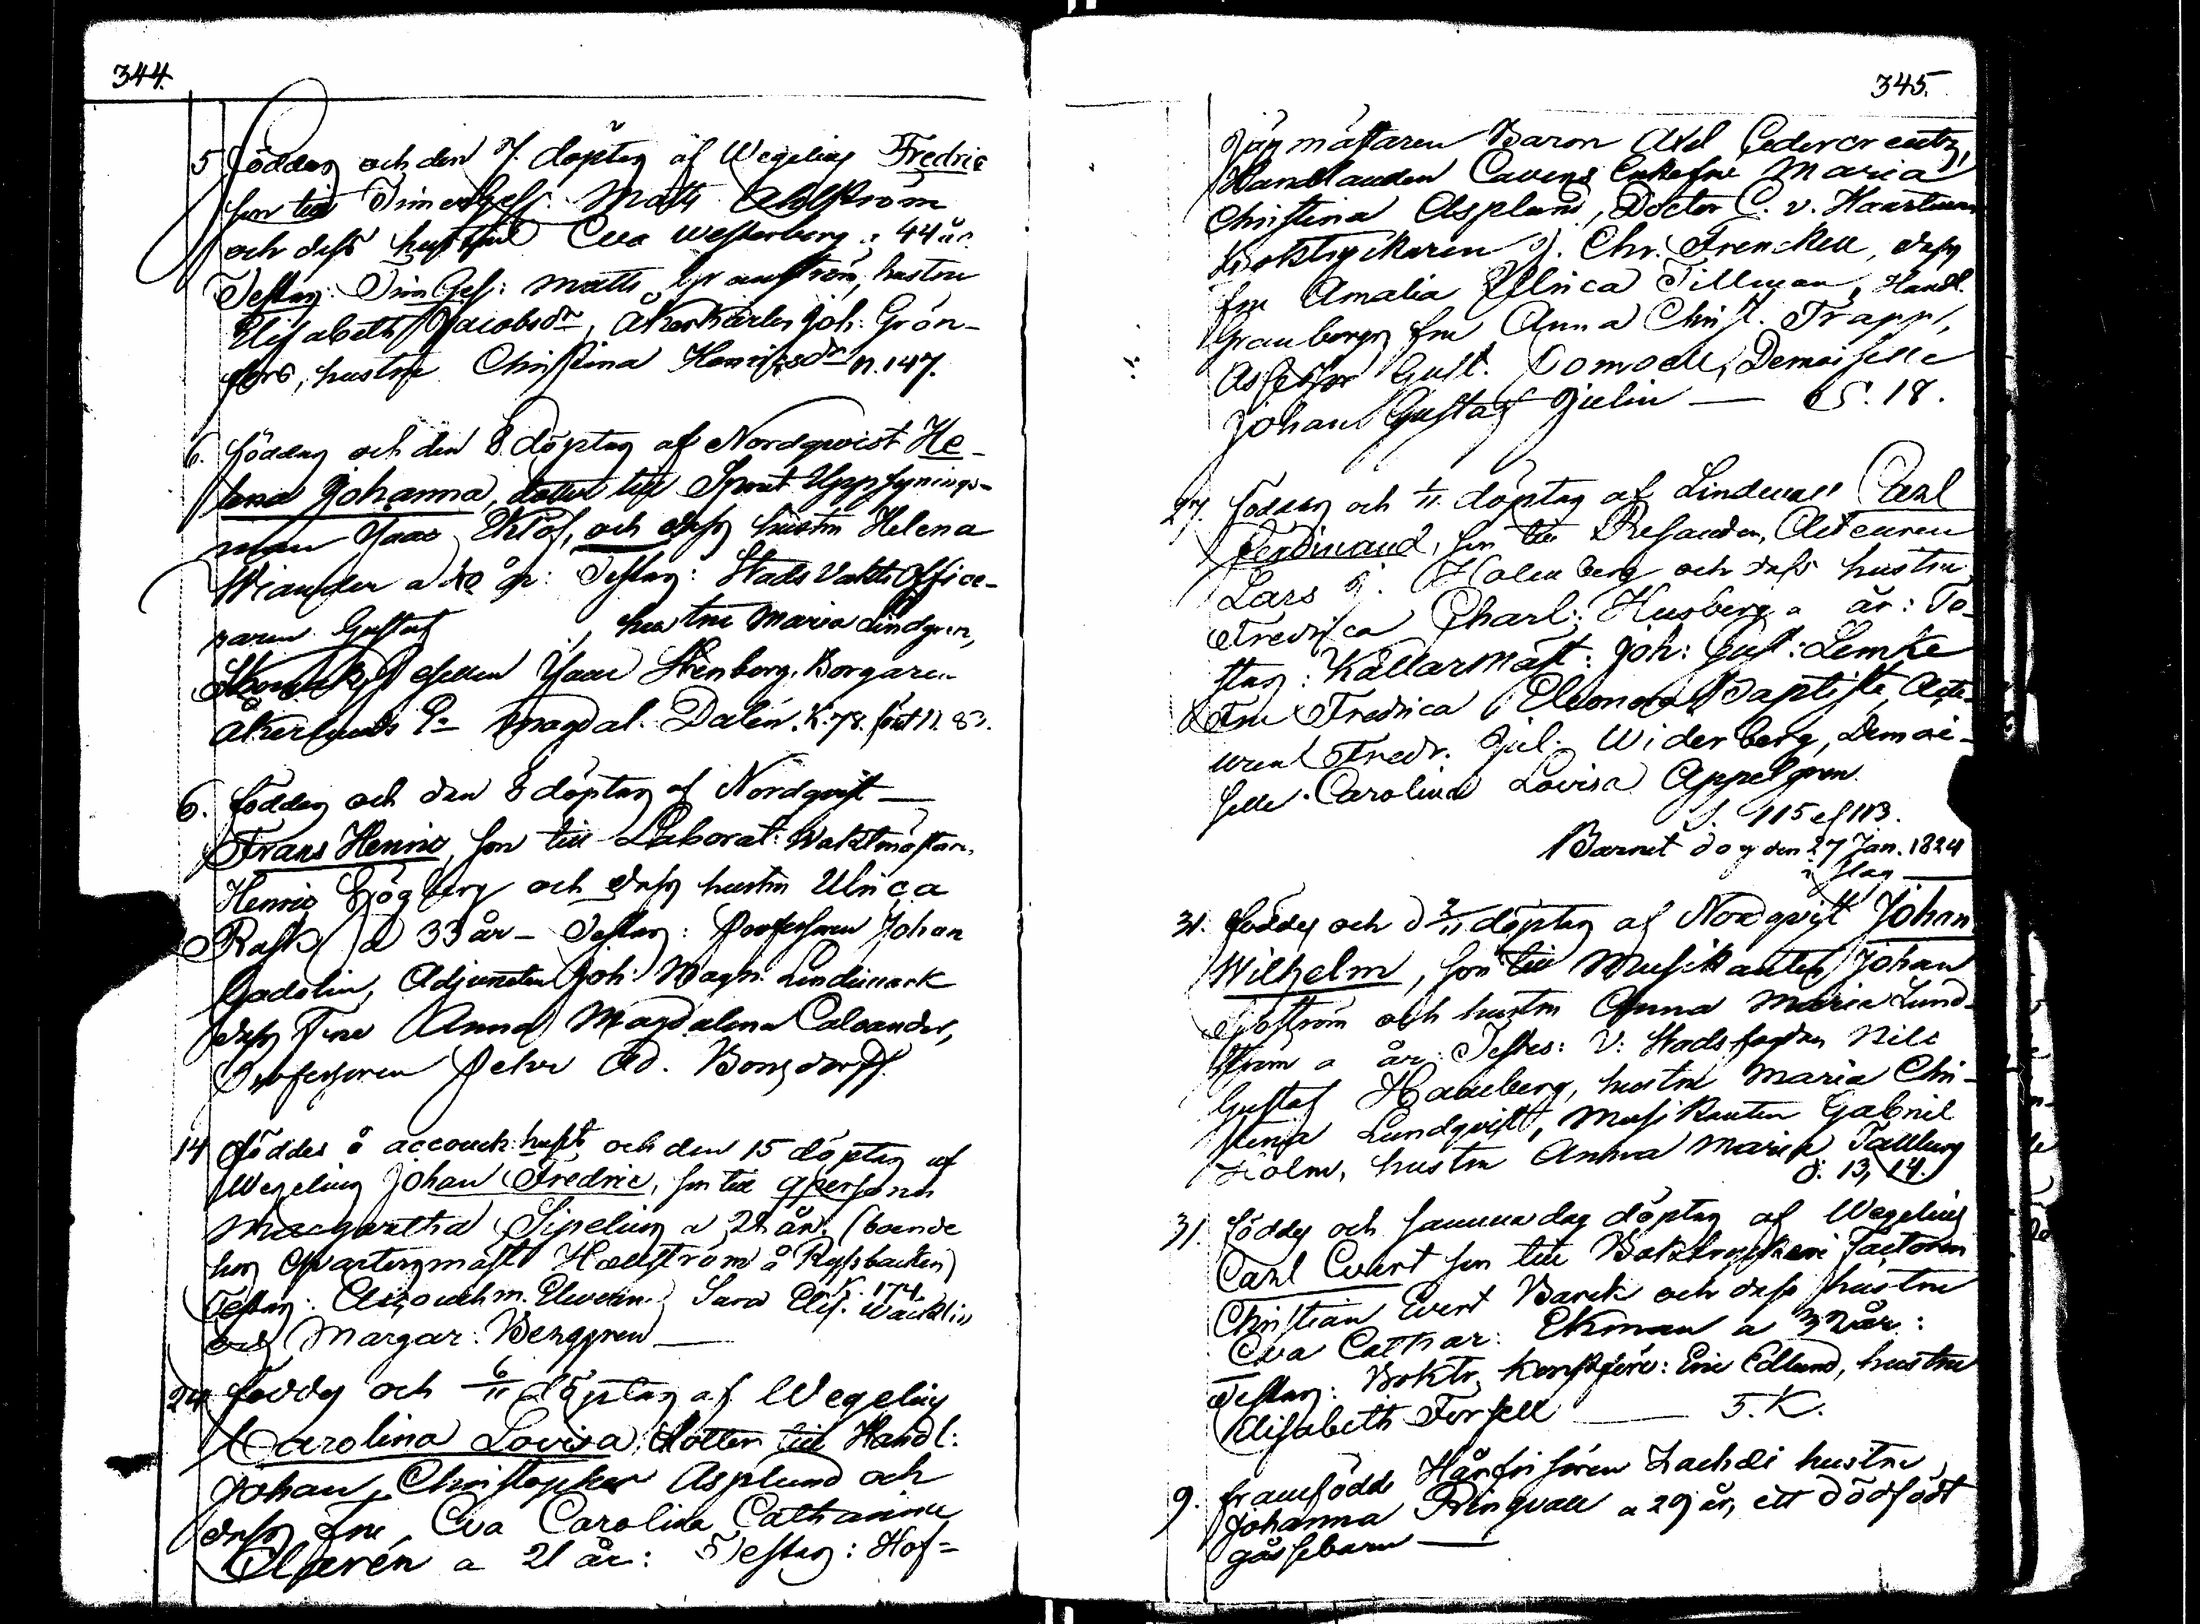 344.
5 föddes och den 7. döptes af Wegelius Fredric
son till Timergess: Matts Ahlström
och dess hustru Eva Westerberg a 44 år.
Testes: Tim Ges: Matts hustru
Elisabeth Jacobsdr, Åkerkarlen Joh: Grön-
fors, hustru Christina Henricsdr n. 147.
6. föddes och den 8 döptes af Nordqwist He-
lena Johanna, dotter till Sprut Uppsynings-
man Isaac Eklöf, och dess hustru Helena
Wiander a år: Testes: Stads Vakts Office-
raren Gustaf , hustru Maria Lindgren,
Gesellen Isaac Stenberg, Borgaren
Åkerlunds Magdal. Dalen. K. 78. förut N. 83.
6. föddes och den 8 döptes af Nordqvist —
Frans Henric, son till Laborat: Waktmästaren
Henric Högberg och dess hustru Ulrica
Rask a 33 år — Testes: Professoren Johan
Gadolin, Adjuncten Joh: Magn: Lindmark
dess Fru Anna Magdalena Calvander,
Professoren Pehr Ad. Bonsdorff.
14 föddes å accouch: huset och den 15 döptes af
Wegelius Johan Fredric, son till qpersonen
Margaretha Sipelius a 24 år. (boende
hos Qvartersmäst Hællström å Ryssbacken)
K. 174
Testes: Accouchm. Elverin. Sara Elis. Wacklin
och Margar: Berggren —
24 föddes och 6/11 döptes af Wegelius
Carolina Lovisa, dotter till Handl:
Johan Christopher Asplund och
dess fru, Eva Carolina Catharina
Elgerén a 21 år: Testes: Hof=
345.
Jägmästaren Baron Axel Cedercreutz,
Handlanden Cavens Enkefru Maria
Christina Asplund, Doctor C. v. Haartman
Boktryckaren J. Chr. Frenckell, dess
fru Amalia Ulrica Tillman, Handl.
Granbergs fru Anna Christ. Trapp,
Assessor Gust. Domoell, Demoiselle
Johan Gustaf Julin — S. 18.
27. föddes och 1/11 döptes af Lindwall Carl
Ferdinand, son till Resanden, Acteuren
Lars J. Holmberg och dess hustru
Fredrica Charl: Husberg a år: Te-
stes: Källarmäst: Joh: Gust: Lemke
Fru Fredrica Eleonora Baptiste, Acte-
uren Fredr. Jul. Widerberg, Demoi-
selle Carolina Lovisa Appelgren.
S. 115 ef 113.
Barnet dog den 27 Jan. 1824
i slag —
31. föddes och d 2/11 döptes af Nordqvist Johan
Wilhelm, son till Musikanten Johan
Sjöström och hustru Anna Maria Lund-
ström a år: Testes: V: Stadsfogden Nils
Gustaf Hamberg, hustru Maria Chri-
stina Lundqvist, Musikanten Gabriel
Holm, hustru Anna Maria Tallberg
S. 13, 14.
31. föddes och samma dag döptes af Wegelius
Carl Evert son till Boktryckeri Factoren
Christian Evert Barck och dess hustru
Eva Cathar: Ekman a 32 år:
Testes: Boktr. Konstföre: Eric Edlund, hustru
Elisabeth Forssell — S. K.
9. framfödde Hårfrisören Zachæi hustru
Johanna Ringvall a 29 år, ett dödfödt
gåssebarn —